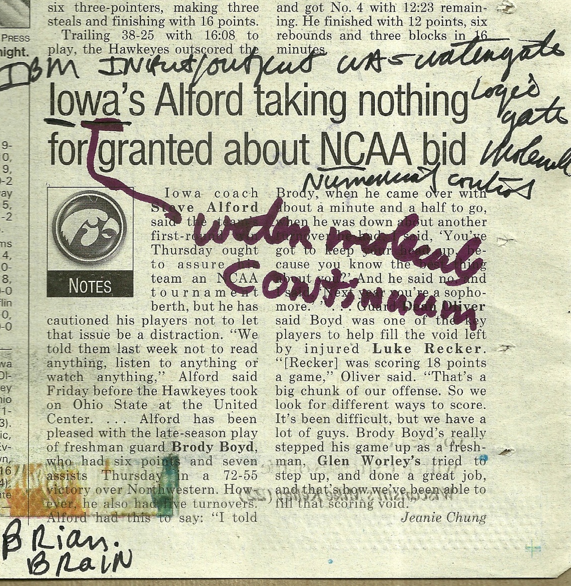 six three-pointers, making three
steals and finishing with 16 points.
Trailing 38-25 with 16:08 to
play, the Hawkeyes outscored the
and got No. 4 with 12:23 remain-
ing. He finished with 12 points, six
rebounds and three blocks in 16
minutes.
PRESS
night.
IBM Input/output was watergate
logic
gate
molecule
Numerical control
Iowa's Alford taking nothing
for granted about NCAA bid
NOTES
Iowa coach
Steve Alford
said the
first-
Thursday ought
to assure
team an NCAA
tournament
berth, but he has
cautioned his players not to let
that issue be a distraction. “We
told them last week not to read
anything, listen to anything or
watch anything,” Alford said
Friday before the Hawkeyes took
on Ohio State at the United
Center. . . . Alford has been
pleased with the late-season play
of freshman guard Brody Boyd,
who had six points and seven
assists Thursday in a 72-55
victory over Northwestern. How-
ever, he also had five turnovers.
Alford had this to say: “I told
Brody, when he came over with
about a minute and a half to go,
when he was down but another
said, ‘You've
got to keep
cause you know the
about And he said no and
Next you're a sopho-
more. Guard Oliver
said Boyd was one of the key
players to help fill the void left
by injured Luke Recker.
“[Recker] was scoring 18 points
a game,” Oliver said. “That's a
big chunk of our offense. So we
look for different ways to score.
It's been difficult, but we have a
lot of guys. Brody Boyd's really
stepped his game up as a fresh-
man. Glen Worley's tried to
step up, and done a great job,
and that's how we've been able to
fill that scoring void.”
Jeanie Chung
molecule
continuum
Brian.
BRAIN